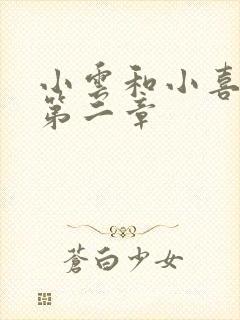 小雲和小喜
第二章
蒼白少女